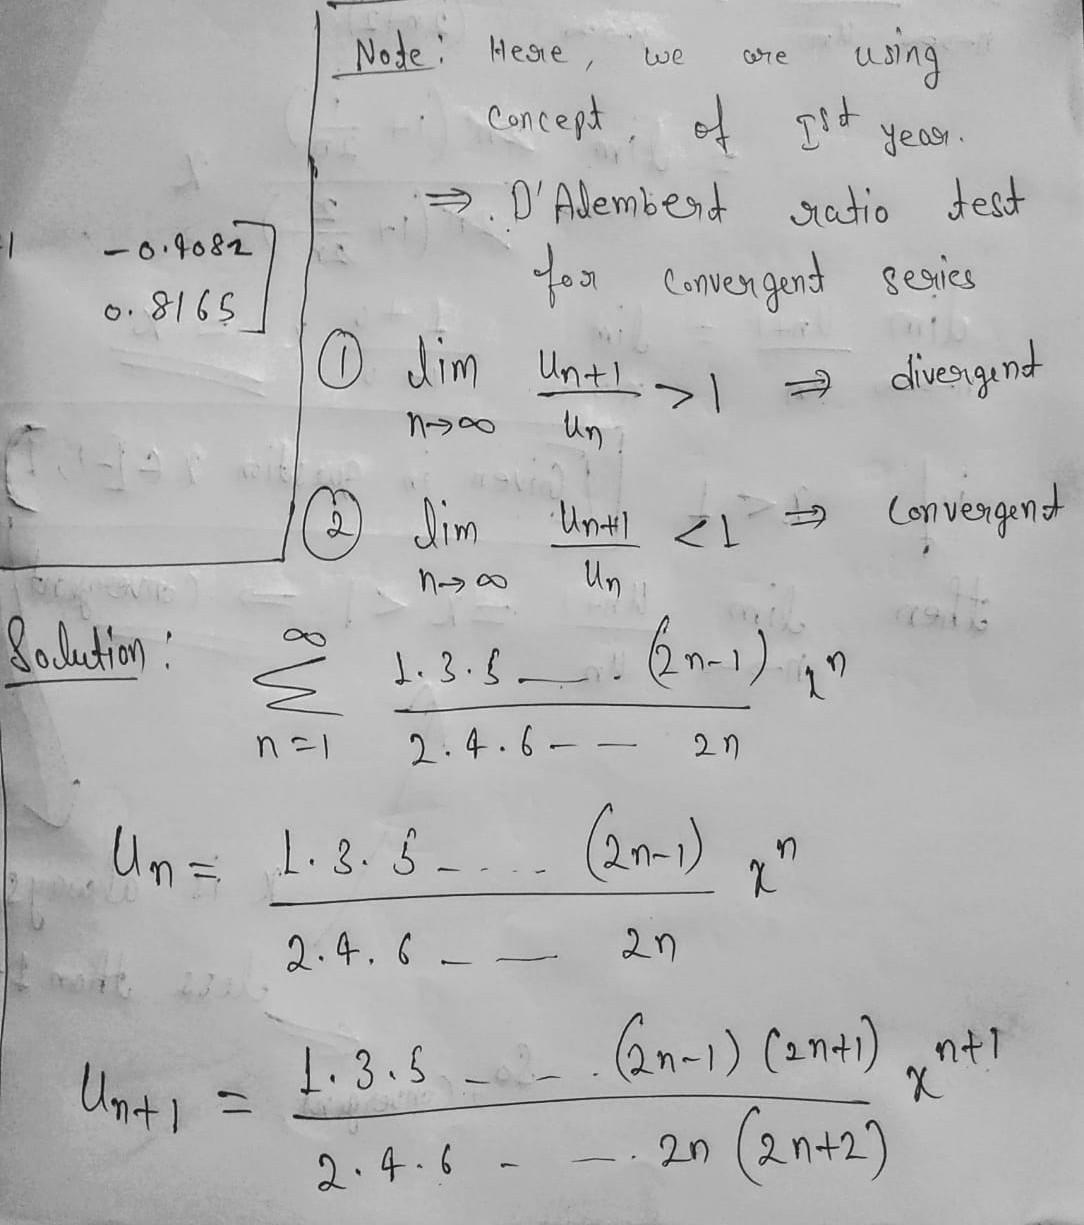 Note: Here, we are using
concept of Ist year.
⇒ D'Alembert ratio test
for convergent series
-0.4082
0.8165
① lim n→∞ Un+1/Un > 1 ⇒ divergent
② lim n→∞ Un+1/Un < 1 ⇒ convergent
Solution: ∞ Σ n=1 1.3.5 — . (2n-1) / 2.4.6 - — 2n x^n
Un = 1.3.5 - . . . - (2n-1) / 2.4.6 - — 2n x^n
Un+1 = 1.3.5 - - . (2n-1) (2n+1) / 2.4.6 - — . 2n (2n+2) x^n+1